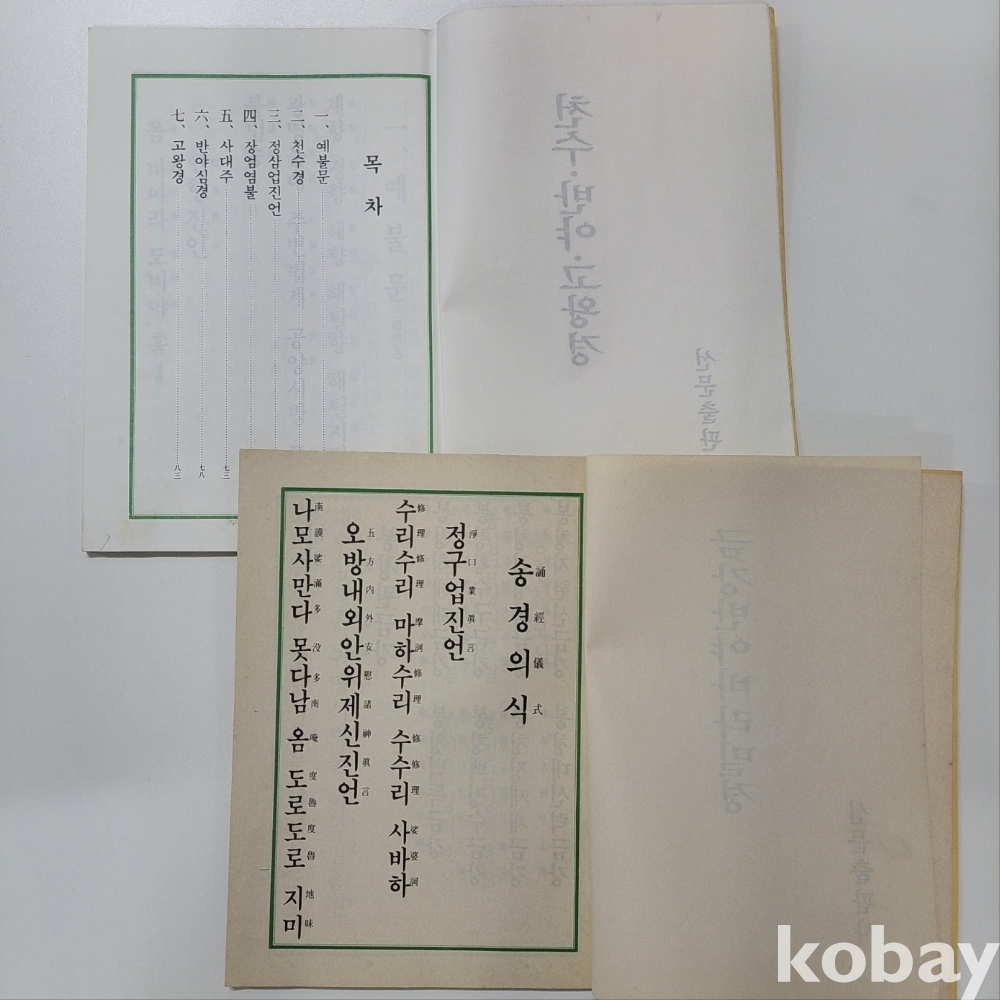 목차
一、예불문
二、천수경
三、정삼업진언
四、장엄염불
五、사대주 七三
六、반야심경 七八
七、고왕경 八三
천수·반야·고왕경
선문출판
송경의식
誦經儀式
정구업진언
淨口業眞言
수리수리 마하수리 수수리 사바하
修理修理 摩訶修理 修修理 娑婆訶
오방내외안위제신진언
五方內外安慰諸神眞言
나모사만다 못다남 옴 도로도로 지미
南謨娑滿多 沒多南 唵 度魯度魯 地味
금강반야바라밀경
선문출판사
kobay